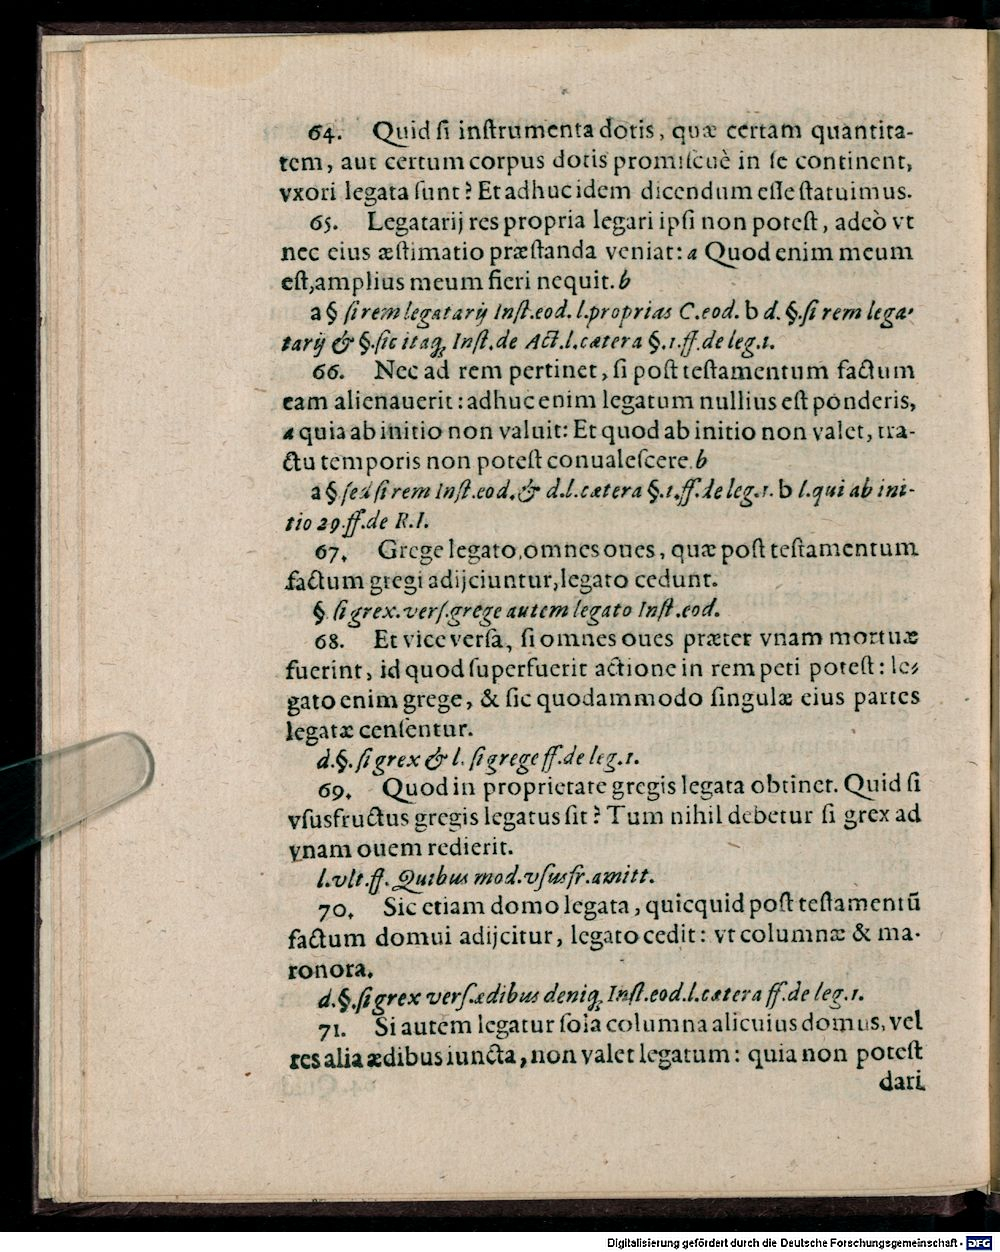 64. Quid ſi inſtrumenta dotis, quæ certam quantita-
tem, aut certum corpus dotis promiſcuè in ſe continent,
vxori legata ſunt? Et adhuc idem dicendum eſſe ſtatuimus.
65. Legatarij res propria legari ipſi non poteſt, adeò vt
nec eius æſtimatio præſtanda veniat: a Quod enim meum
eſt, amplius meum fieri nequit. b
a § ſi rem legatarij Inſt. eod. l. proprias C. eod. b d. §. ſi rem lega-
tarij & §. ſic itaq, Inſt. de Act. l. cætera §. 1. ff. de leg. 1.
66. Nec ad rem pertinet, ſi poſt teſtamentum factum
eam alienauerit: adhuc enim legatum nullius eſt ponderis,
a quia ab initio non valuit: Et quod ab initio non valet, tra-
ctu temporis non poteſt conualeſcere. b
a § ſed ſi rem Inſt. eod. & d. l. cætera §. 1. ff. de leg. 1. b l. qui ab ini-
tio 29. ff. de R. I.
67. Grege legato, omnes oues, quæ poſt teſtamentum
factum gregi adijciuntur, legato cedunt.
§. ſi grex. verſ. grege autem legato Inſt. eod.
68. Et vice verſa, ſi omnes oues præter vnam mortuæ
fuerint, id quod ſuperfuerit actione in rem peti poteſt: le-
gato enim grege, & ſic quodammodo ſingulæ eius partes
legatæ cenſentur.
d. §. ſi grex & l. ſi grege ff. de leg. 1.
69. Quod in proprietate gregis legata obtinet. Quid ſi
vſusfructus gregis legatus ſit? Tum nihil debetur ſi grex ad
vnam ouem redierit.
l. vlt. ff. Quibus mod. vſusfr. amitt.
70. Sic etiam domo legata, quicquid poſt teſtamentũ
factum domui adijcitur, legato cedit: vt columnæ & ma-
ronora.
d. §. ſi grex verſ. ædibus deniq, Inſt. eod. l. cætera ff. de leg. 1.
71. Si autem legatur ſola columna alicuius domus, vel
res alia ædibus iuncta, non valet legatum: quia non poteſt
dari
Digitalisierung gefördert durch die Deutsche Forschungsgemeinschaft - DFG